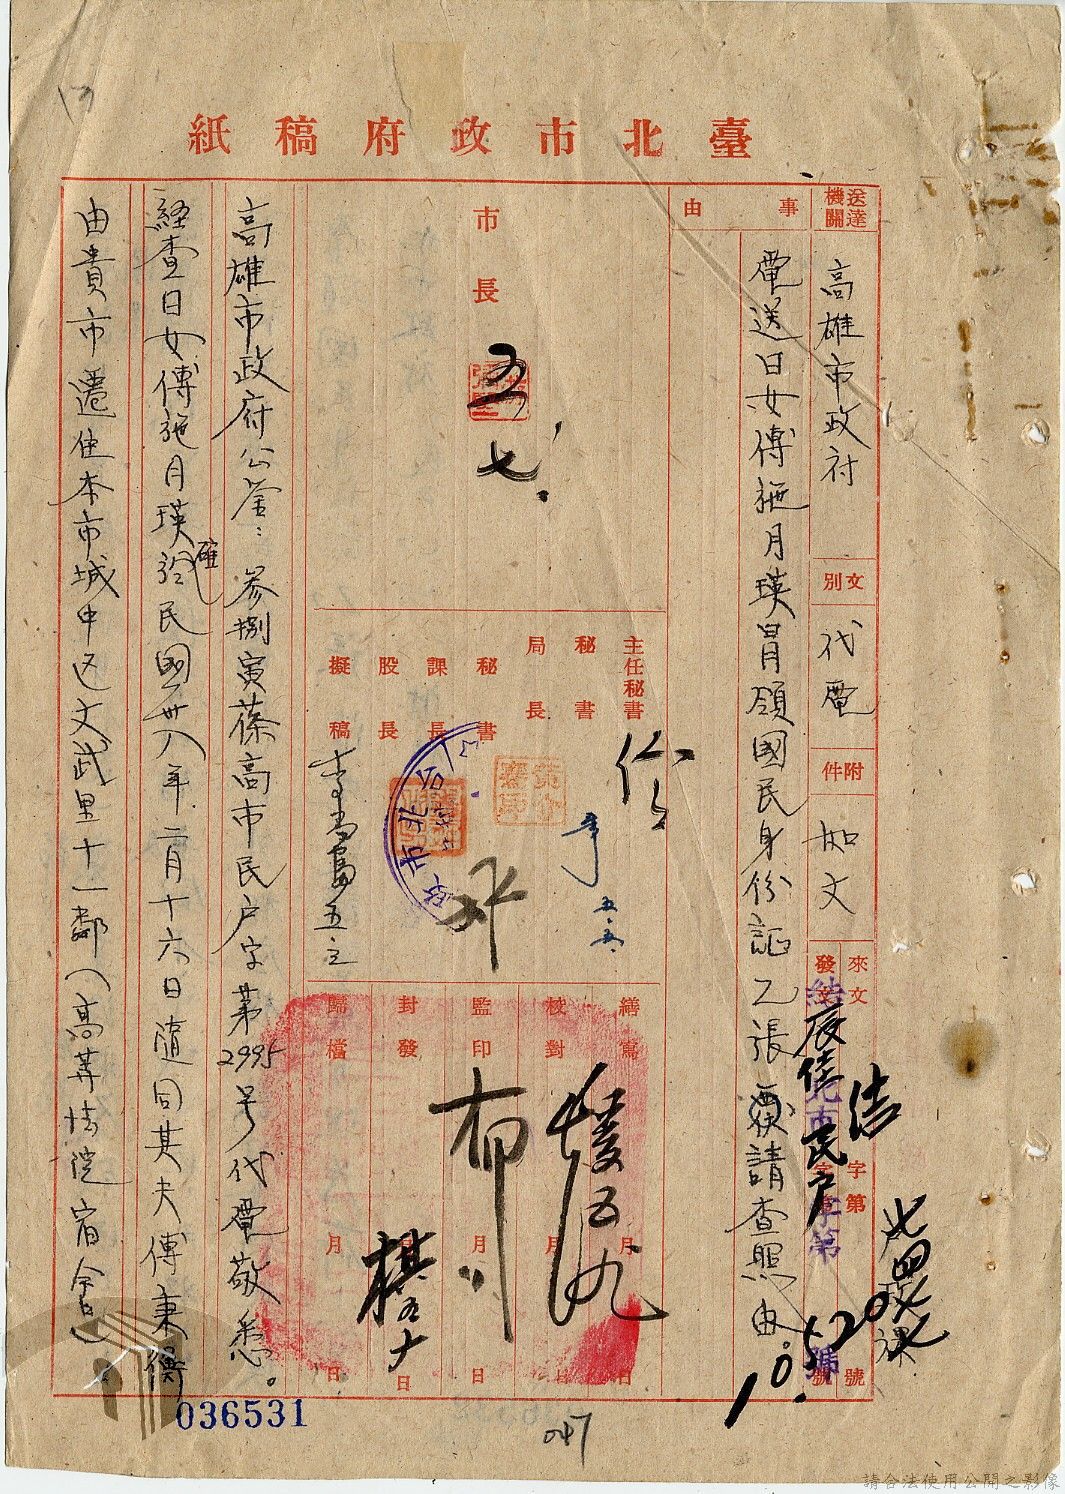 臺北市政府稿紙
送達機關
高雄市政府
文別
代電
附件
如文
來文
字第
號
發文
辰佳
民戶
字第
10520
號
事由
電送日女傅施月瑛冒領國民身份証乙張覆請查照由。
市長
五
七
主任秘書
秘書
局長
秘書
課長
股長
擬稿
五.五.
繕寫
月
日
校對
五九
月
日
監印
月
日
封發
五十
月
日
歸檔
月
日
高雄市政府公鑒:參捌寅蓧高市民戶字第2995號代電敬悉。
経查日女傅施月瑛確於民國卅八年二月十六日隨同其夫傅秉衡
由貴市遷住本市城中区文武里十一鄰(高等法院宿舍)
036531
047
17
請合法使用公開之影像